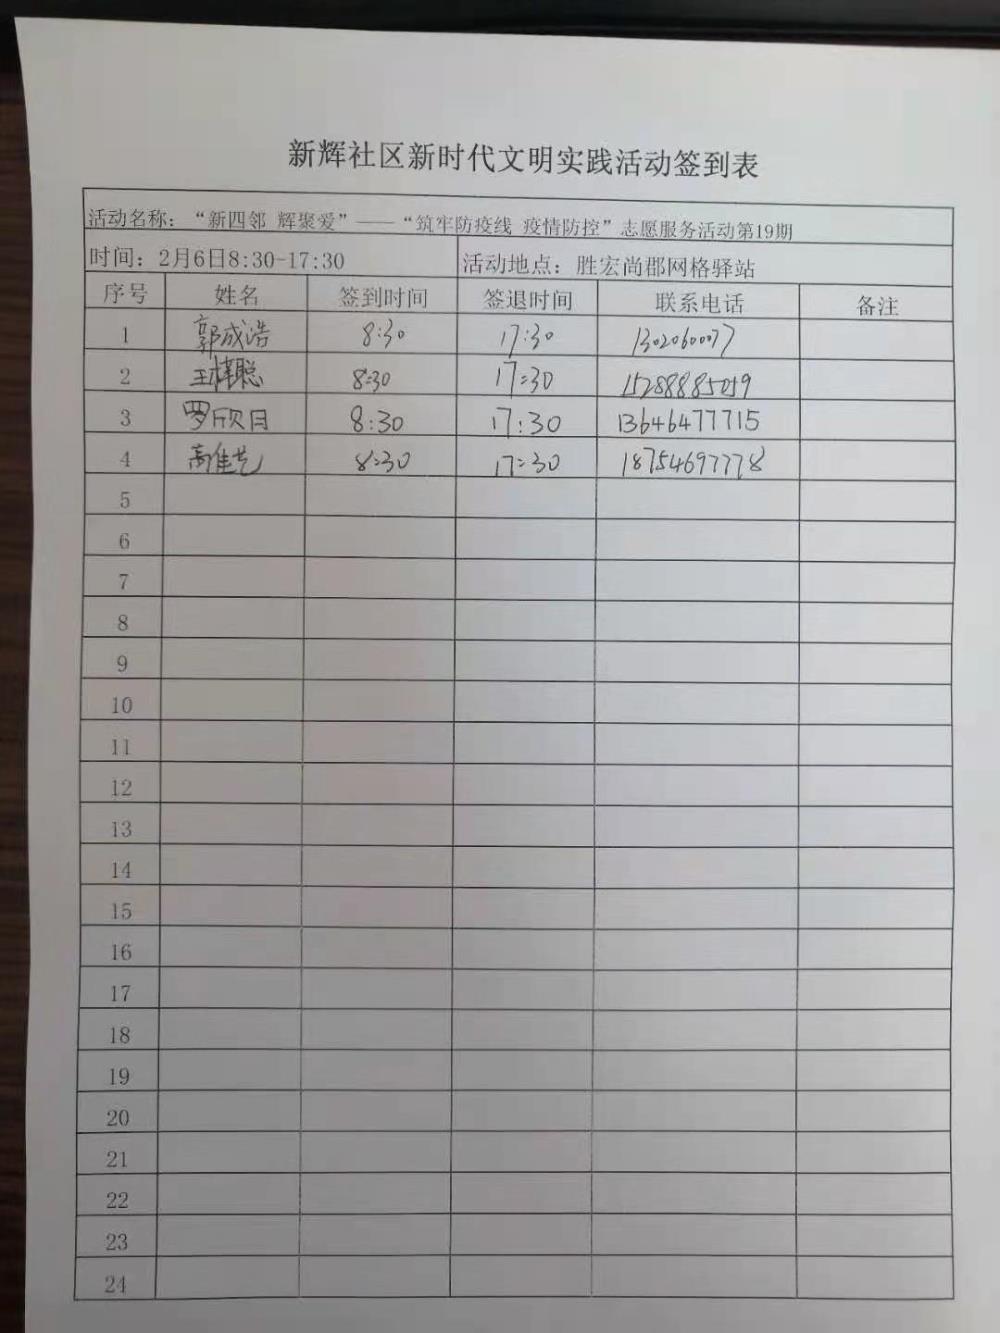 新辉社区新时代文明实践活动签到表
活动名称：“新四邻 辉聚爱”——“筑牢防疫线 疫情防控”志愿服务活动第19期
时间：2月6日8:30-17:30 活动地点：胜宏尚郡网格驿站
序号 姓名 签到时间 签退时间 联系电话 备注
1 郭成浩 8:30 17:30 1302060077
2 王梓聪 8:30 17:30 15288885019
3 罗欣月 8:30 17:30 13646477715
4 高佳艺 8:30 17:30 18754697778
5
6
7
8
9
10
11
12
13
14
15
16
17
18
19
20
21
22
23
24